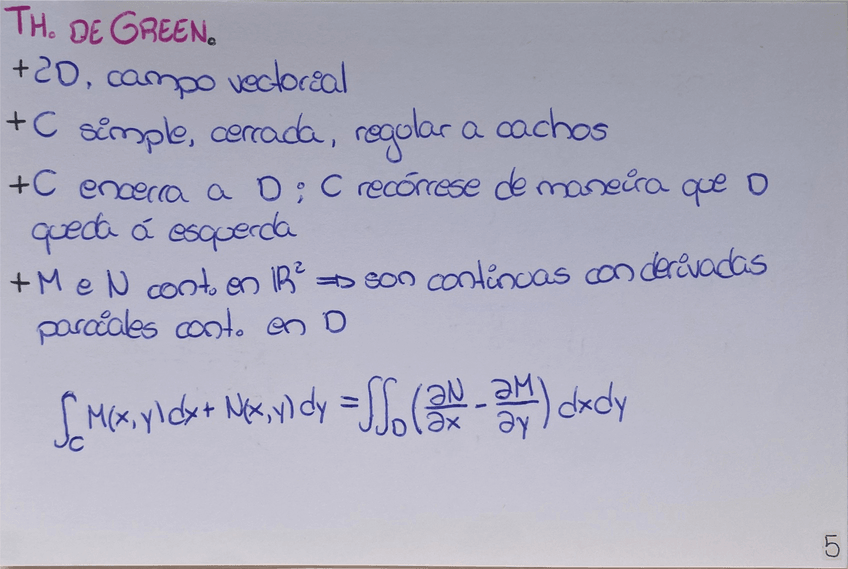 TH. DE GREEN.
+2D, campo vectorial
+C simple, cerrada, regular a cachos
+C encerra a D; C recórrese de maneira que D
queda á esquerda
+M e N cont. en ℝ² ⇒ son continuas con derivadas
parciales cont. en D
∫_C M(x,y)dx + N(x,y)dy = ∬_D (∂N/∂x - ∂M/∂y) dxdy
5